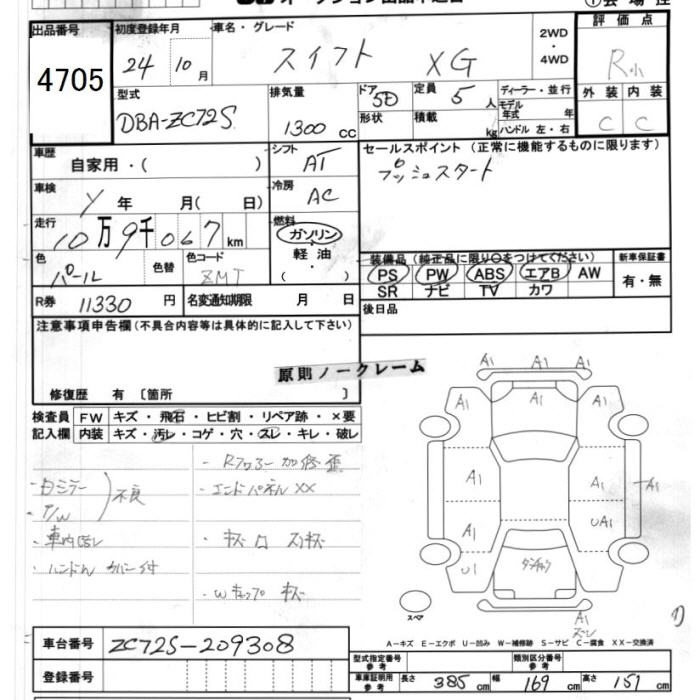 出品番号
4705
初度登録年月
24年10月
車名・グレード
スイフト XG
2WD
・
4WD
評価点
R小
外装 内装
C C
型式
DBA-ZC72S
排気量
1300 cc
ドア
5D
形状
定員
5人
積載
kg
ディーラー・並行
モデル年式 年
ハンドル 左・右
車歴
自家用・( )
シフト
AT
セールスポイント(正常に機能するものに限ります)
プッシュスタート
車検
年 月( 日)
冷房
AC
走行
10万9千067km
燃料
ガソリン
・
軽油
・
( )
色
パール
色替
色コード
ZMT
装備品(純正品に限り○をつけてください)
PS PW ABS エアB AW
SR ナビ TV カワ
新車保証書
有・無
R券 11330円
名変通知期限 月 日
後日品
注意事項申告欄(不具合内容等は具体的に記入して下さい)
原則ノークレーム
修復歴 有 〔箇所 〕
検査員記入欄
FW キズ・飛石・ヒビ割・リペア跡・×要
内装 キズ・汚レ・コゲ・穴・スレ・キレ・破レ
・Rフロアー 加修歪
・エンドパネル XX
P/W
不良
・ハンドル カバー付
A1 A1 A1
A1 A1 A1
A1 A1 A1
A1 UA1
U1 A1
A1
スペア
A-キズ E-エクボ U-凹み W-補修跡 S-サビ C-腐食 XX-交換済
車台番号 ZC72S-209308
登録番号
型式指定番号 参考
類別区分番号 参考
車庫証明用 参考
長さ 385cm 幅 169cm 高さ 151cm